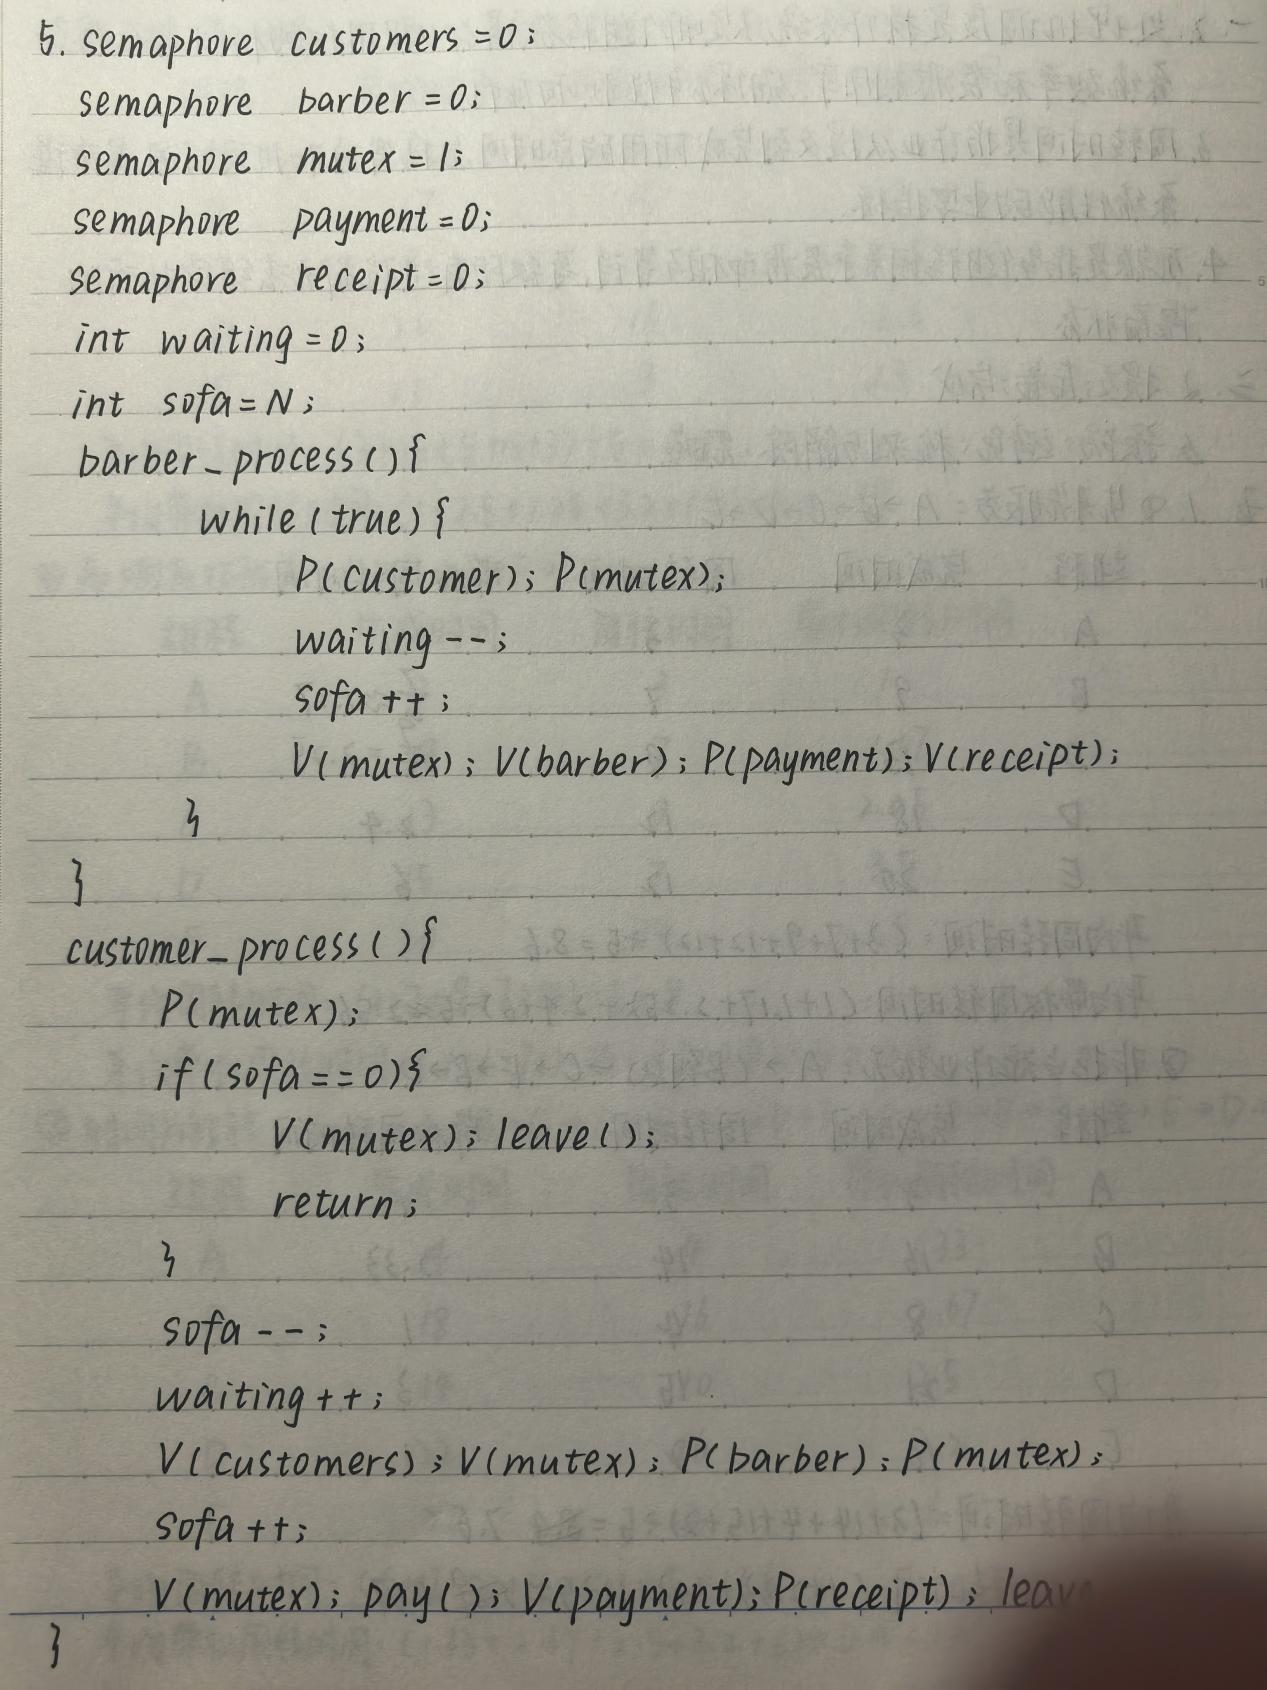 5. semaphore customers = 0;
semaphore barber = 0;
semaphore mutex = 1;
semaphore payment = 0;
semaphore receipt = 0;
int waiting = 0;
int sofa = N;
barber_process(){
while(true){
P(customer); P(mutex);
waiting--;
sofa++;
V(mutex); V(barber); P(payment); V(receipt);
}
}
customer_process(){
P(mutex);
if(sofa==0){
V(mutex); leave();
return;
}
sofa--;
waiting++;
V(customers); V(mutex); P(barber); P(mutex);
sofa++;
V(mutex); pay(); V(payment); P(receipt); leav
}